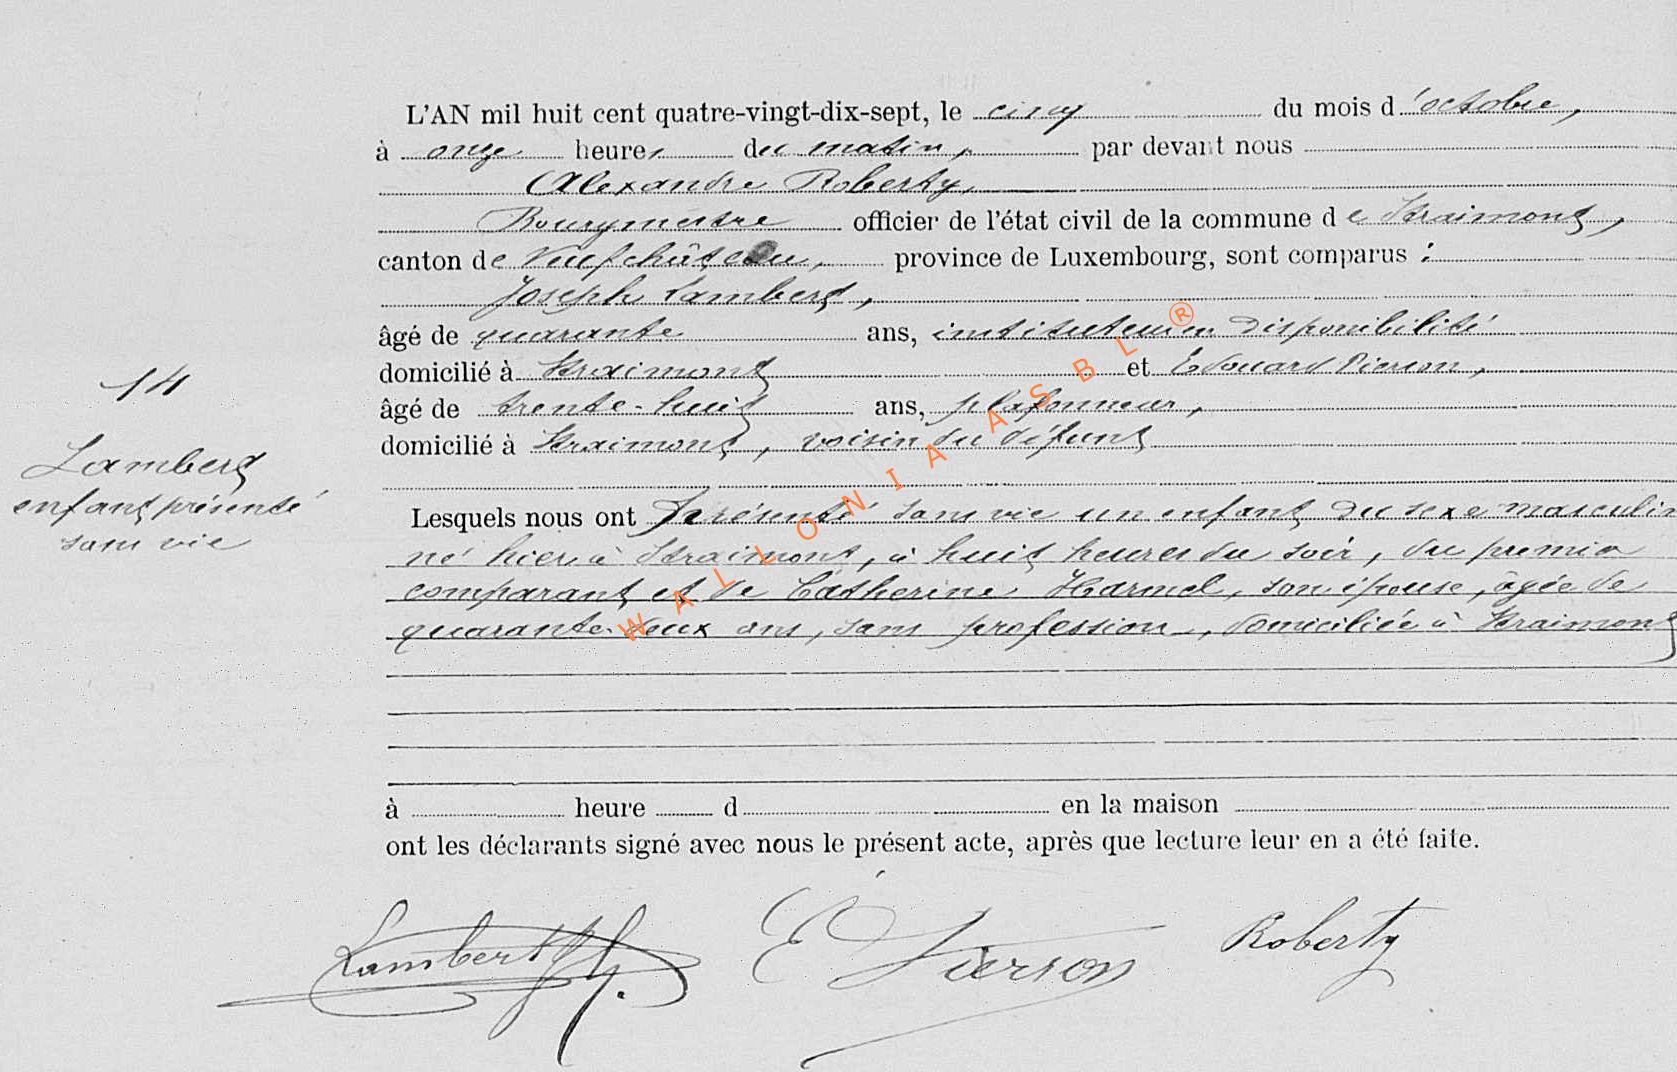 L'AN mil huit cent quatre-vingt-dix-sept, le cinq du mois d'octobre,
à onze heures du matin, par devant nous
Alexandre Roberty,
Bourgmestre officier de l'état civil de la commune de Straimont,
canton de Neufchâteau, province de Luxembourg, sont comparus :
Joseph Lambert,
âgé de quarante ans, instituteur en disponibilité
domicilié à Straimont et Edouard Pierson,
âgé de trente-huit ans, plafonneur,
domicilié à Straimont, voisin du défunt
14
Lambert
enfant présenté
sans vie
Lesquels nous ont présenté sans vie un enfant du sexe masculin
né hier à Straimont, à huit heures du soir, du premier
comparant et de Catherine Harmel, son épouse, âgée de
quarante-deux ans, sans profession, domiciliée à Straimont
à heure d en la maison
ont les déclarants signé avec nous le présent acte, après que lecture leur en a été faite.
Lambert E Pierson Roberty
WALLONIA ASBL ®